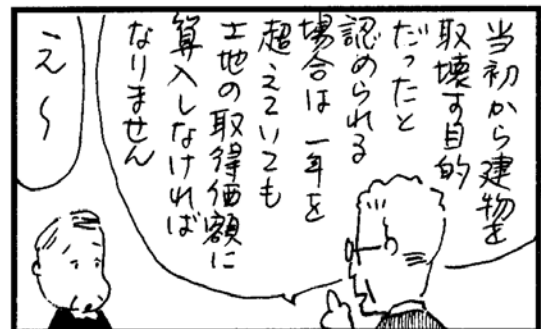 当初から建物を
取壊す目的
だったと
認められる
場合は一年を
超えていても
土地の取得価額に
算入しなければ
なりません
え～